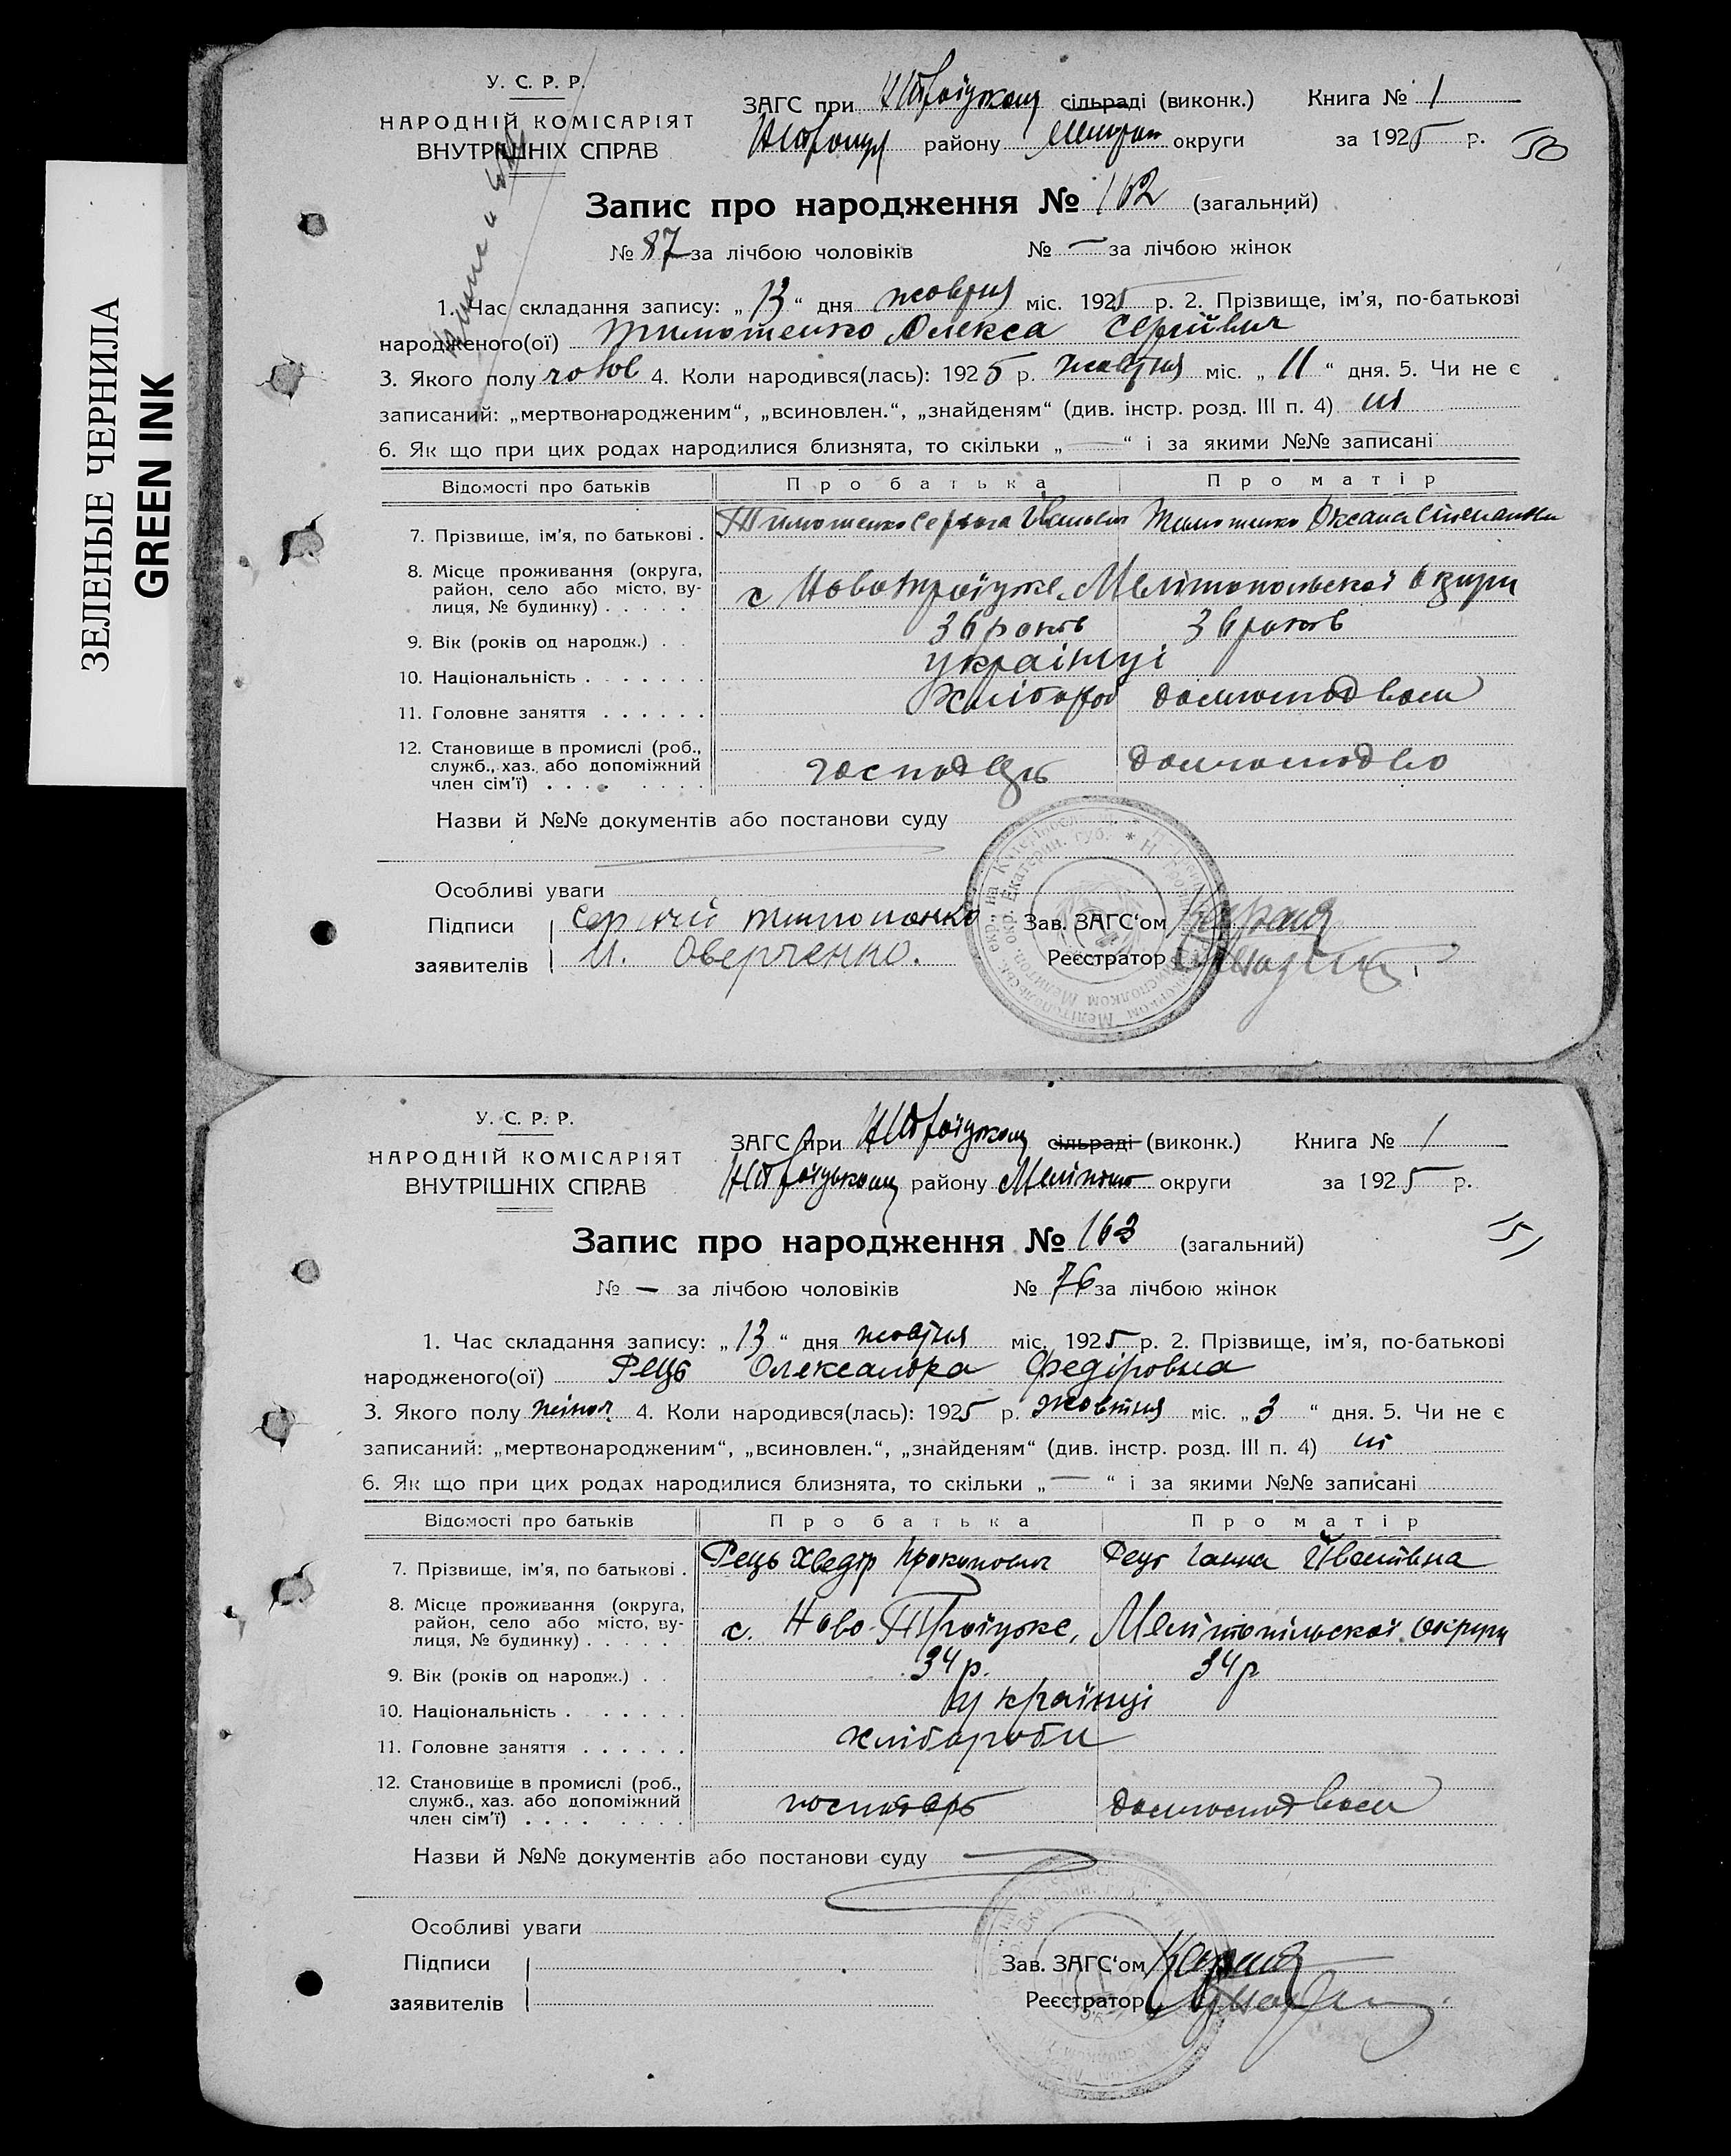 ЗЕЛЕНЫЕ ЧЕРНИЛА
GREEN INK
У. С. Р. Р.
НАРОДНІЙ КОМІСАРІЯТ
ВНУТРІШНІХ СПРАВ
ЗАГС при сільраді (виконк.) Книга № 1
району округи за 1925 р. 50
Запис про народження № 162 (загальний)
№ 87 за лічбою чоловіків № — за лічбою жінок
1. Час складання запису: „13“ дня жовтня міс. 1925 р. 2. Прізвище, ім’я, по-батькові
народженого(ої) Тимошенко Олекса Сергійвич
3. Якого полу чолов 4. Коли народився(лась): 1925 р. жовтня міс. „11“ дня. 5. Чи не є
записаний: „мертвонародженим“, „всиновлен.“, „знайденям“ (див. інстр. розд. III п. 4) ні
6. Як що при цих родах народилися близнята, то скільки „—“ і за якими №№ записані
Відомості про батьків Про батька Про матір
7. Прізвище, ім’я, по батькові . Тимошенко Тимошенко Оксана Степанівна
8. Місце проживання (округа,
район, село або місто, ву-
лиця, № будинку) . . . . . с Новотроїцьке, Мелітопольскої округи
9. Вік (років од народж.) . . 36 років 36 років
10. Національність . . . . . . . українці
11. Головне заняття . . . . . . Хлібороб
12. Становище в промислі (роб.,
служб., хаз. або допоміжний
член сім’ї) . . . . . . . . господарь домгосподво
Назви й №№ документів або постанови суду
Особливі уваги
Підписи Сергий Тимошенко Зав. ЗАГС‘ом
заявителів И. Оверченко. Реєстратор
У. С. Р. Р.
НАРОДНІЙ КОМІСАРІЯТ
ВНУТРІШНІХ СПРАВ
ЗАГС при сільраді (виконк.) Книга № 1
району округи за 1925 р.
51
Запис про народження № 163 (загальний)
№ — за лічбою чоловіків № 76 за лічбою жінок
1. Час складання запису: „13“ дня жовтня міс. 1925 р. 2. Прізвище, ім’я, по-батькові
народженого(ої) Рець Олександра Федіровна
3. Якого полу жіноч 4. Коли народився(лась): 1925 р. жовтня міс. „3“ дня. 5. Чи не є
записаний: „мертвонародженим“, „всиновлен.“, „знайденям“ (див. інстр. розд. III п. 4) ні
6. Як що при цих родах народилися близнята, то скільки „—“ і за якими №№ записані
Відомості про батьків Про батька Про матір
7. Прізвище, ім’я, по батькові . Рець Хведір Прокопович Рець Ганна Йвановна
8. Місце проживання (округа,
район, село або місто, ву-
лиця, № будинку) . . . . . с. Ново-Троїцьке, Мелітопільскої округи
9. Вік (років од народж.) . . 34 р. 34 р
10. Національність . . . . . . . українці
11. Головне заняття . . . . . . хлібороби
12. Становище в промислі (роб.,
служб., хаз. або допоміжний
член сім’ї) . . . . . . . . господарь
Назви й №№ документів або постанови суду
Особливі уваги
Підписи Зав. ЗАГС‘ом
заявителів Реєстратор